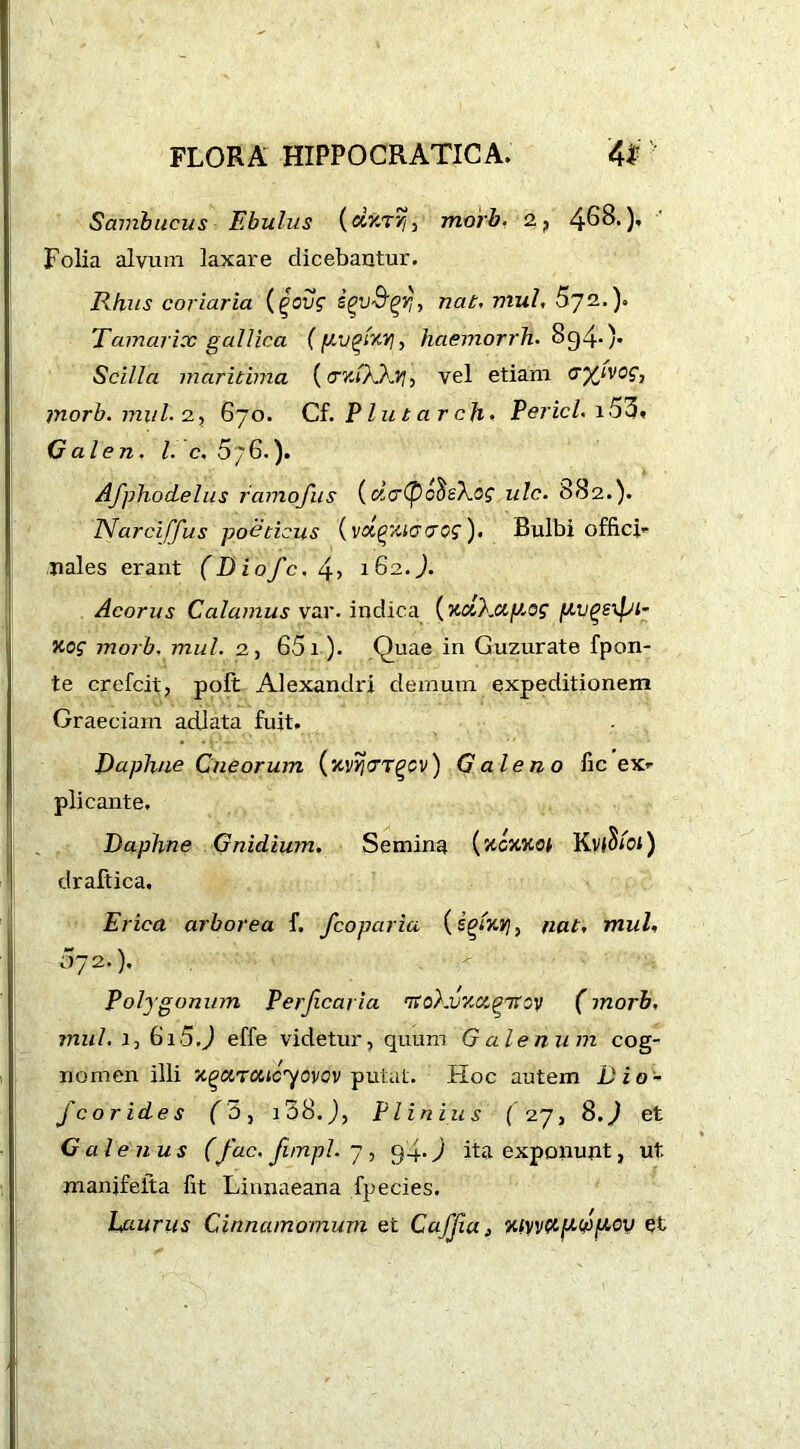 FLORA HIPPOCRATICA. 41
Sambucus Ebulus (ἀκτῆ, morb. 2, 468.),
Folia alvum laxare dicebantur.
Rhus coriaria (ῥοῦς ἐρυθρή, nat. mul. 572.).
Tamarix gallica (μυρίκη, haemorrh. 894.).
Scilla maritima (σκίλλη, vel etiam σχῖνος,
morb. mul. 2, 670. Cf. Plutarch. Pericl. 153.
Galen. l. c. 576.).
Aſphodelus ramoſus (ἀσφόδελος ulc. 882.).
Narciſſus poëticus (νάρκισσος). Bulbi offici-
nales erant (Dioſc. 4, 162.).
Acorus Calamus var. indica (κάλαμος μυρεψι-
κος morb. mul. 2, 651). Quae in Guzurate ſpon-
te creſcit, poſt Alexandri demum expeditionem
Graeciam adlata fuit.
Daphne Cneorum (κνῆστρον) Galeno ſic ex-
plicante.
Daphne Gnidium. Semina (κόκκοι Κνίδιοι)
draſtica.
Erica arborea ſ. ſcoparia (ἐρίκη, nat. mul.
572.).
Polygonum Perſicaria πολύκαρπον (morb.
mul. 1, 615.) eſſe videtur, quum Galenum cog-
nomen illi κραταιόγονον putat. Hoc autem Dio-
ſcorides (3, 138.), Plinius (27, 8.) et
Galenus (fac. ſimpl. 7, 94.) ita exponunt, ut
manifeſta ſit Linnaeana ſpecies.
Laurus Cinnamomum et Caſſia, κιννάμωμον et